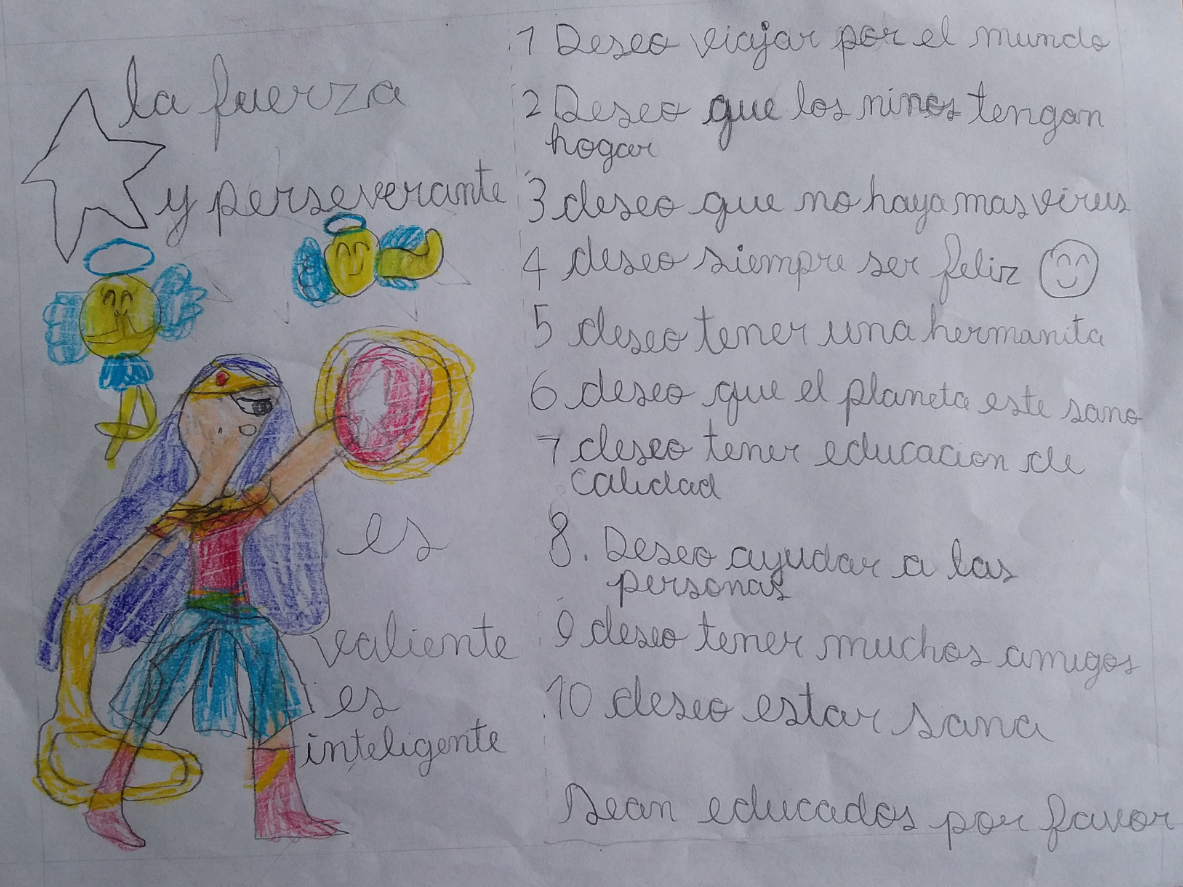 la fuerza
y perseverante
es
valiente
es
inteligente
1 Deseo viajar por el mundo
2 Deseo que los ninos tengan
hogar
3 deseo que no haya mas virus
4 deseo siempre ser feliz
5 deseo tener una hermanita
6 deseo que el planeta este sano
7 deseo tener educacion de
calidad
8. Deseo ayudar a las
personas
9 deseo tener muchos amigos
10 deseo estar sana
sean educados por favor